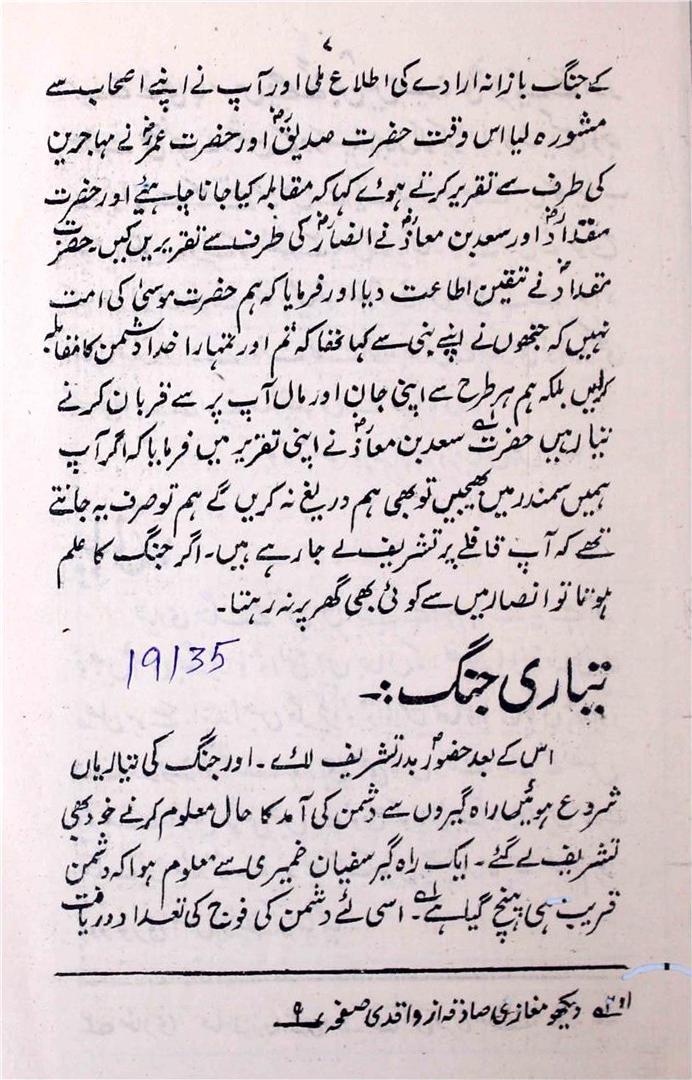 ۷
کے جنگ بازانہ ارادے کی اطلاع ملی اور آپ نے اپنے اصحاب سے
مشورہ لیا اس وقت حضرت صدیقؓ اور حضرت عمرؓ نے مہاجرین
کی طرف سے تقریر کرتے ہوئے کہا کہ مقابلہ کیا جانا چاہیئے اور حضرت
مقدادؓ اور سعد بن معاذؓ نے انصارؓ کی طرف سے تقریریں کیں۔ حضرت
مقدادؓ نے تیقین اطاعت دیا اور فرمایا کہ ہم حضرت موسیٰ کی امت
نہیں کہ جنھوں نے اپنے نبی سے کہا تھا کہ تم اور تمہارا خدا دشمن کا مقابلہ
کرلیں بلکہ ہم ہر طرح سے اپنی جان اور مال آپ پر سے قربان کرنے
تیار ہیں حضرت سعد بن معاذؓ نے اپنی تقریر میں فرمایا کہ اگر آپ
ہمیں سمندر میں بھیجیں تو بھی ہم دریغ نہ کریں گے ہم تو صرف یہ جانتے
تھے کہ آپ قافلے پر تشریف لے جا رہے ہیں۔ اگر جنگ کا علم
ہوتا تو انصار میں سے کوئی بھی گھر پر نہ رہتا۔
تیاری جنگ:۔
19135
اس کے بعد حضورؐ بدر تشریف لائے۔ اور جنگ کی تیاریاں
شروع ہوئیں راہ گیروں سے دشمن کی آمد کا حال معلوم کرنے خود بھی
تشریف لے گئے۔ ایک راہ گیر سفیان ضمیری سے معلوم ہوا کہ دشمن
قریب ہی پہنچ گیا ہے۔ اسی لئے دشمن کی فوج کی تعداد دریافت
دیکھو مغازی صادقہ از واقدی صفحہ ۹